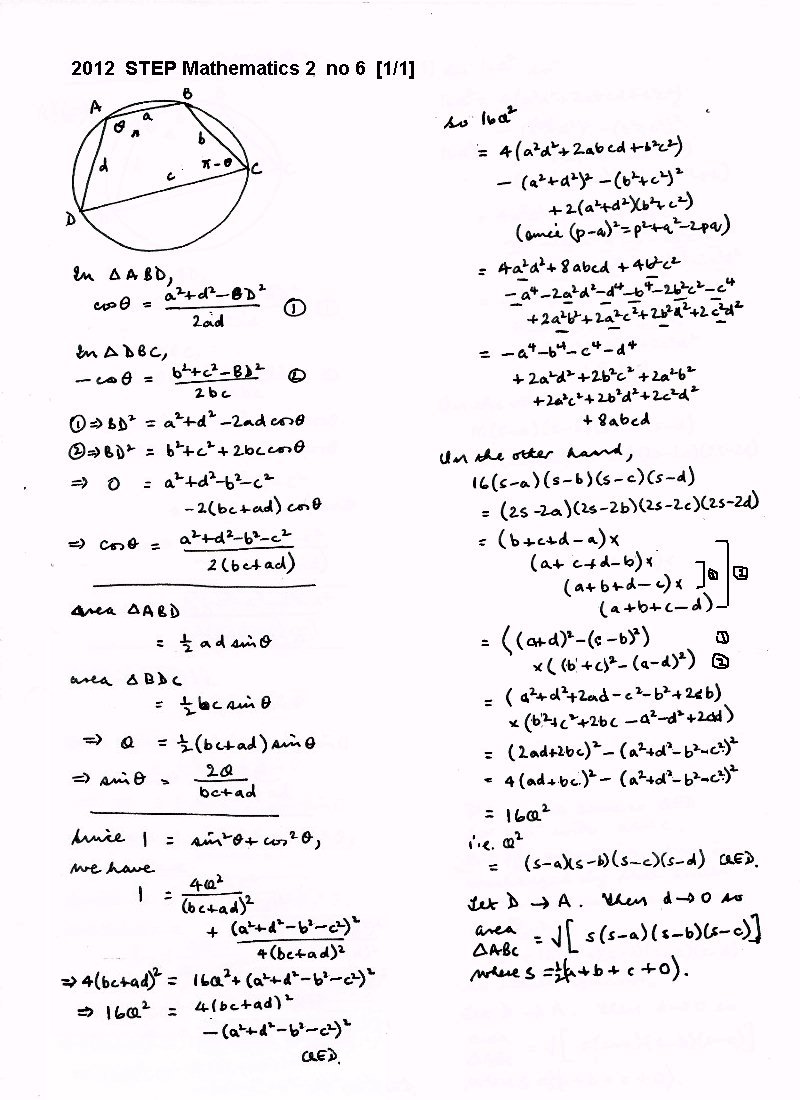 2012 STEP Mathematics 2 no 6 [1/1]
A
B
θ
a
b
π-θ
C
d
c
D
In ΔABD,
cosθ = (a²+d²-BD²)/(2ad) ①
In ΔDBC,
-cosθ = (b²+c²-BD²)/(2bc) ②
①⇒BD² = a²+d²-2ad cosθ
②⇒BD² = b²+c²+2bc cosθ
⇒ 0 = a²+d²-b²-c²
-2(bc+ad) cosθ
⇒ cosθ = (a²+d²-b²-c²)/(2(bc+ad))
area ΔABD
= ½ ad sinθ
area ΔBDC
= ½ bc sinθ
⇒ Q = ½(bc+ad) sinθ
⇒ sinθ = 2Q/(bc+ad)
Since 1 = sin²θ+cos²θ,
we have
1 = 4Q²/(bc+ad)²
+ (a²+d²-b²-c²)²/(4(bc+ad)²)
⇒4(bc+ad)² = 16Q²+(a²+d²-b²-c²)²
⇒ 16Q² = 4(bc+ad)²
-(a²+d²-b²-c²)²
QED.
so 16Q²
= 4(a²d²+2abcd+b²c²)
- (a²+d²)² - (b²+c²)²
+2(a²+d²)(b²+c²)
(since (p-q)²=p²+q²-2pq)
= 4a²d²+8abcd+4b²c²
-a⁴-2a²d²-d⁴-b⁴-2b²c²-c⁴
+2a²b²+2a²c²+2b²d²+2c²d²
= -a⁴-b⁴-c⁴-d⁴
+2a²d²+2b²c²+2a²b²
+2a²c²+2b²d²+2c²d²
+8abcd
On the other hand,
16(s-a)(s-b)(s-c)(s-d)
= (2s-2a)(2s-2b)(2s-2c)(2s-2d)
= (b+c+d-a)×
(a+c+d-b)×
(a+b+d-c)× 1 2
(a+b+c-d)
= ((a+d)²-(c-b)²) 1
×((b+c)²-(a-d)²) 2
= (a²+d²+2ad-c²-b²+2cb)
×(b²+c²+2bc-a²-d²+2ad)
= (2ad+2bc)²-(a²+d²-b²-c²)²
= 4(ad+bc)²-(a²+d²-b²-c²)²
= 16Q²
i.e. Q²
= (s-a)(s-b)(s-c)(s-d) QED.
Let D → A. Then d→0 so
area ΔABC = √[s(s-a)(s-b)(s-c)]
where s = ½(a+b+c+0).